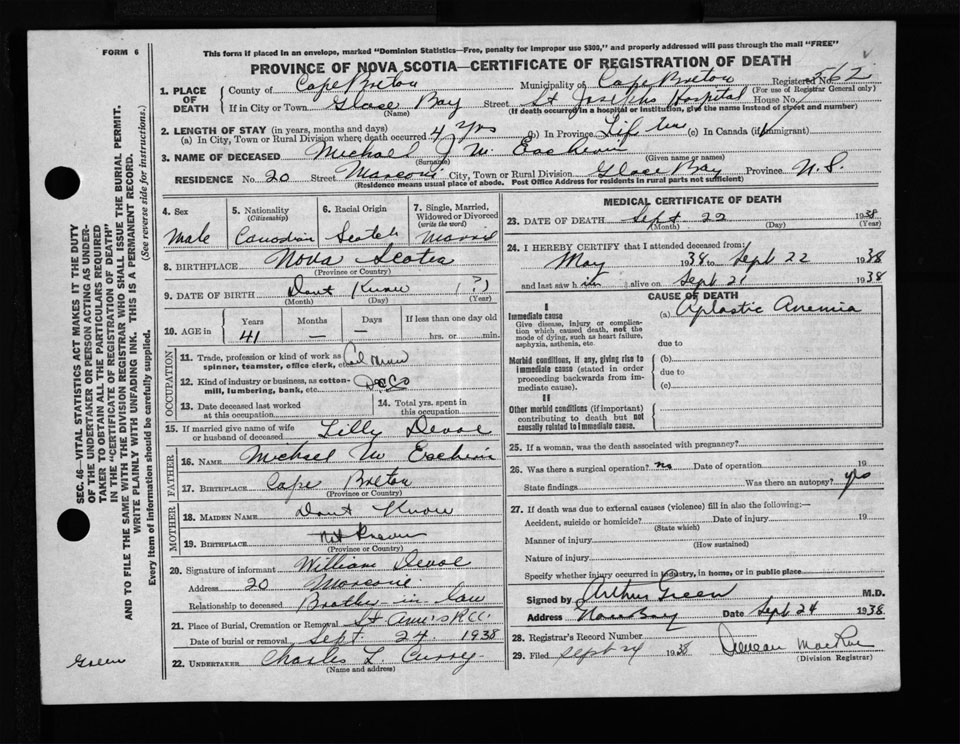 FORM 6
This form if placed in an envelope, marked "Dominion Statistics—Free, penalty for improper use $300," and properly addressed will pass through the mail "FREE"
PROVINCE OF NOVA SCOTIA—CERTIFICATE OF REGISTRATION OF DEATH
SEC. 46—VITAL STATISTICS ACT MAKES IT THE DUTY
OF THE UNDERTAKER OR PERSON ACTING AS UNDER-
TAKER TO OBTAIN ALL THE PARTICULARS REQUIRED
IN THE "CERTIFICATE OF REGISTRATION OF DEATH"
AND TO FILE THE SAME WITH THE DIVISION REGISTRAR WHO SHALL ISSUE THE BURIAL PERMIT.
WRITE PLAINLY WITH UNFADING INK. THIS IS A PERMANENT RECORD.
Every item of information should be carefully supplied. (See reverse side for instructions.)
1. PLACE OF DEATH
County of Cape Breton Municipality of Cape Breton Registered No. 562
(For use of Registrar General only)
If in City or Town Glace Bay Street St Josephs Hospital House No.
(Name) (If death occurred in a hospital or institution, give the name instead of street and number)
2. LENGTH OF STAY (in years, months and days)
(a) In City, Town or Rural Division where death occurred 4 yrs (b) In Province Life time (c) In Canada (if immigrant)
3. NAME OF DECEASED Michael J Mc Eachern
(Surname) (Given name or names)
RESIDENCE No. 20 Street Marconi City, Town or Rural Division Glace Bay Province N.S.
(Residence means usual place of abode. Post Office Address for residents in rural parts not sufficient)
4. Sex 5. Nationality (Citizenship) 6. Racial Origin 7. Single, Married, Widowed or Divorced (write the word)
Male Canadian Scotch Married
8. BIRTHPLACE Nova Scotia
(Province or Country)
9. DATE OF BIRTH Dont Know (?)
(Month) (Day) (Year)
10. AGE in Years Months Days If less than one day old
41 — — hrs. or min.
OCCUPATION
11. Trade, profession or kind of work as spinner, teamster, office clerk, etc.
12. Kind of industry or business, as cotton-mill, lumbering, bank, etc. Dosco
13. Date deceased last worked at this occupation
14. Total yrs. spent in this occupation
15. If married give name of wife or husband of deceased Lilly Devoe
FATHER
16. NAME Michael Mc Eachern
17. BIRTHPLACE Cape Breton
(Province or Country)
MOTHER
18. MAIDEN NAME Dont Know
19. BIRTHPLACE not Known
(Province or Country)
20. Signature of informant William Devoe
Address 20 Marconi
Relationship to deceased Brother in law
21. Place of Burial, Cremation or Removal St Ann's R.C.C.
Date of burial or removal Sept. 24 1938
22. UNDERTAKER Charles L. Curry
(Name and address)
Green
MEDICAL CERTIFICATE OF DEATH
23. DATE OF DEATH Sept 22 1938
(Month) (Day) (Year)
24. I HEREBY CERTIFY that I attended deceased from:
May 1938 to Sept 22 1938
and last saw him alive on Sept 21 1938
CAUSE OF DEATH
I
Immediate cause (a) Aplastic Anemia
Give disease, injury or complication which caused death, not the mode of dying, such as heart failure, asphyxia, asthenia, etc.
due to
Morbid conditions, if any, giving rise to immediate cause (stated in order proceeding backwards from immediate cause).
(b)
due to
(c)
II
Other morbid conditions (if important) contributing to death but not causally related to immediate cause.
25. If a woman, was the death associated with pregnancy?
26. Was there a surgical operation? no Date of operation 19
State findings Was there an autopsy? yes
27. If death was due to external causes (violence) fill in also the following:—
Accident, suicide or homicide? Date of injury 19
(State which)
Manner of injury
(How sustained)
Nature of injury
Specify whether injury occurred in industry, in home, or in public place
Signed by Arthur Green M.D.
Address Date Sept 24 1938
28. Registrar's Record Number
29. Filed Sept 24 1938 Duncan MacRae
(Division Registrar)